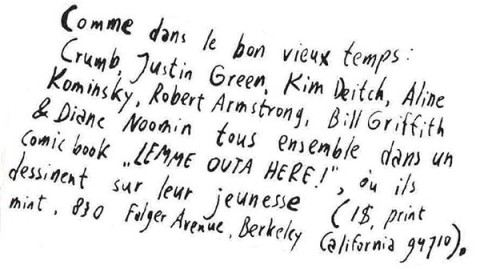 Comme dans le bon vieux temps:
Crumb, Justin Green, Kim Deitch, Aline
Kominsky, Robert Armstrong, Bill Griffith
& Diane Noomin tous ensemble dans un
comic book „LEMME OUTA HERE!", où ils
dessinent sur leur jeunesse (1$, print
mint, 830 Folger Avenue, Berkeley California 94710).